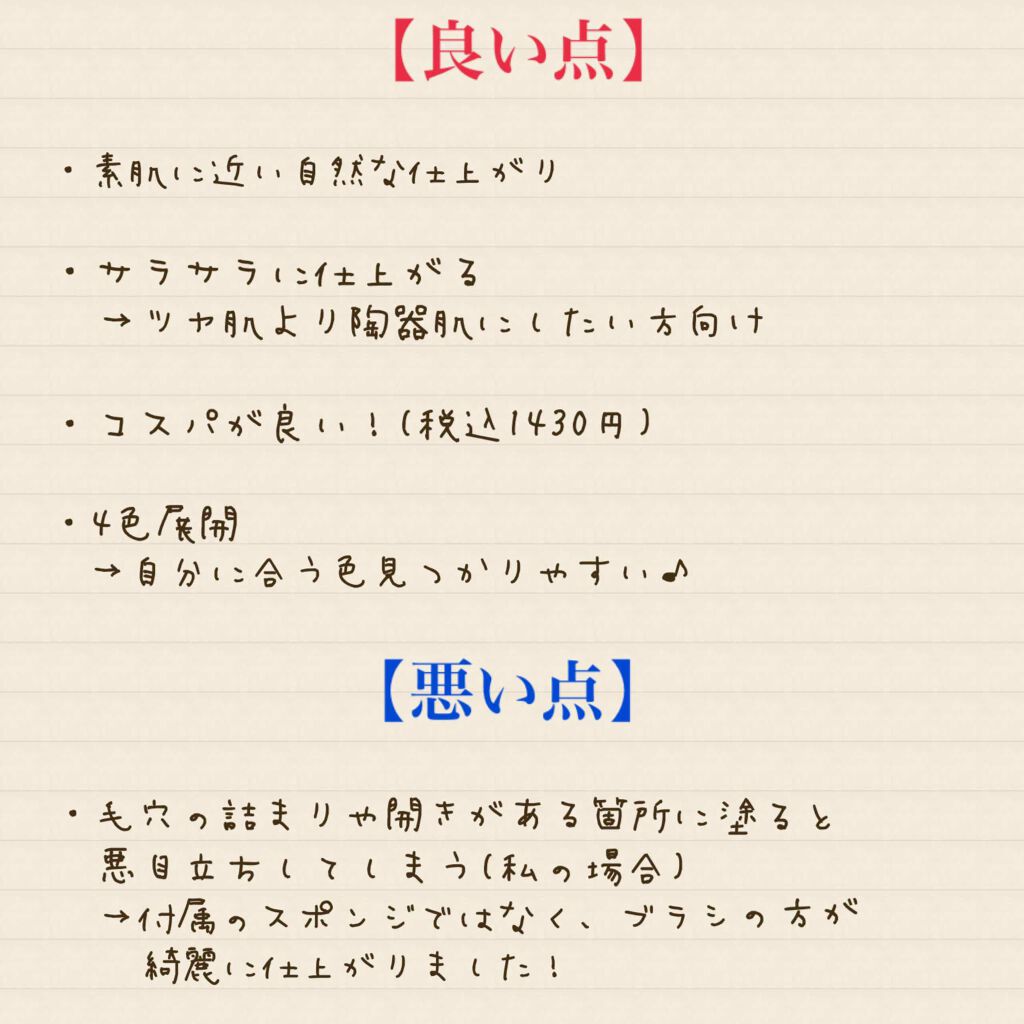 【良い点】
・素肌に近い自然な仕上がり
・サラサラに仕上がる
→ツヤ肌より陶器肌にしたい方向け
・コスパが良い！(税込1430円)
・4色展開
→自分に合う色見つかりやすい♪
【悪い点】
・毛穴の詰まりや開きがある箇所に塗ると
悪目立ちしてしまう(私の場合)
→付属のスポンジではなく、ブラシの方が
綺麗に仕上がりました！